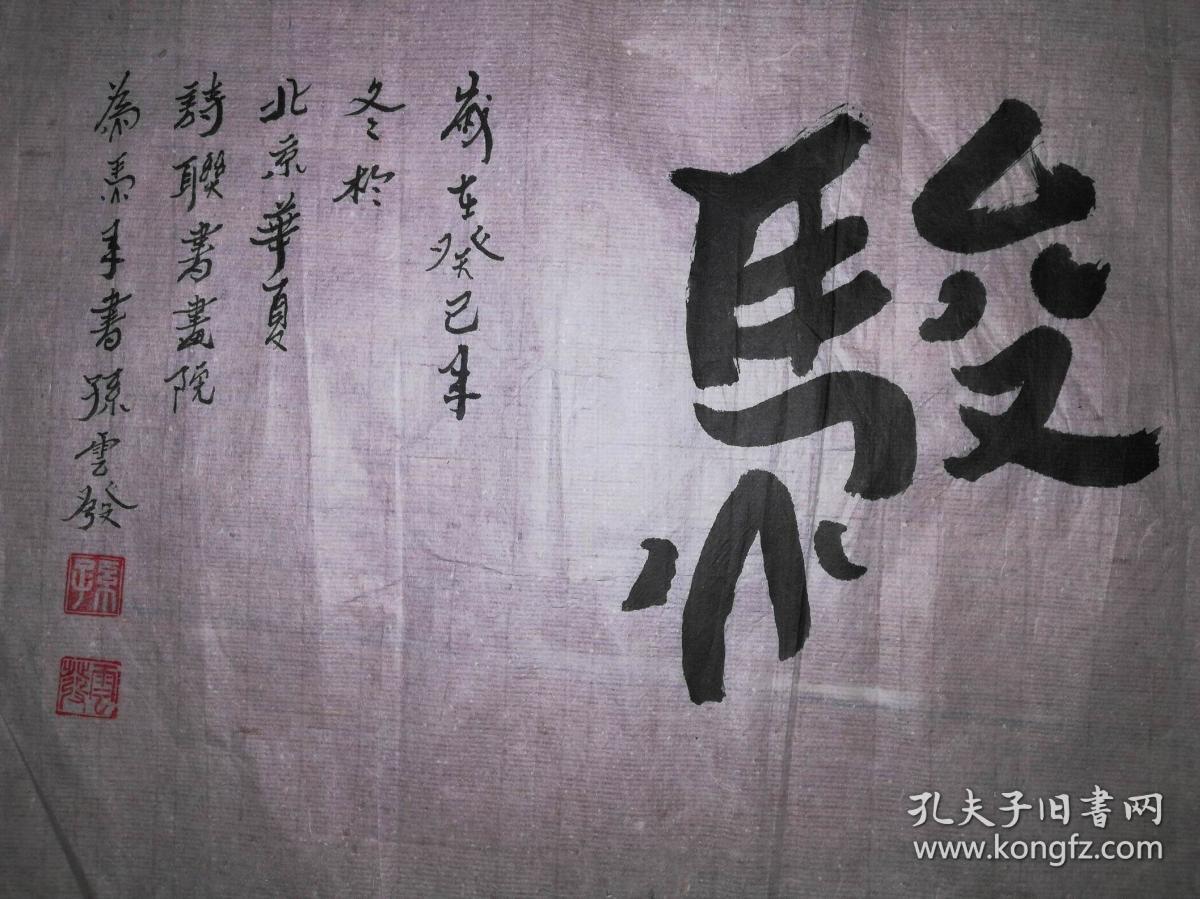 駿
歲在癸巳年
冬於
北京華夏
詩聯書畫院
為馬年書孫雲發
孫
雲發
孔夫子旧书网
www.kongfz.com